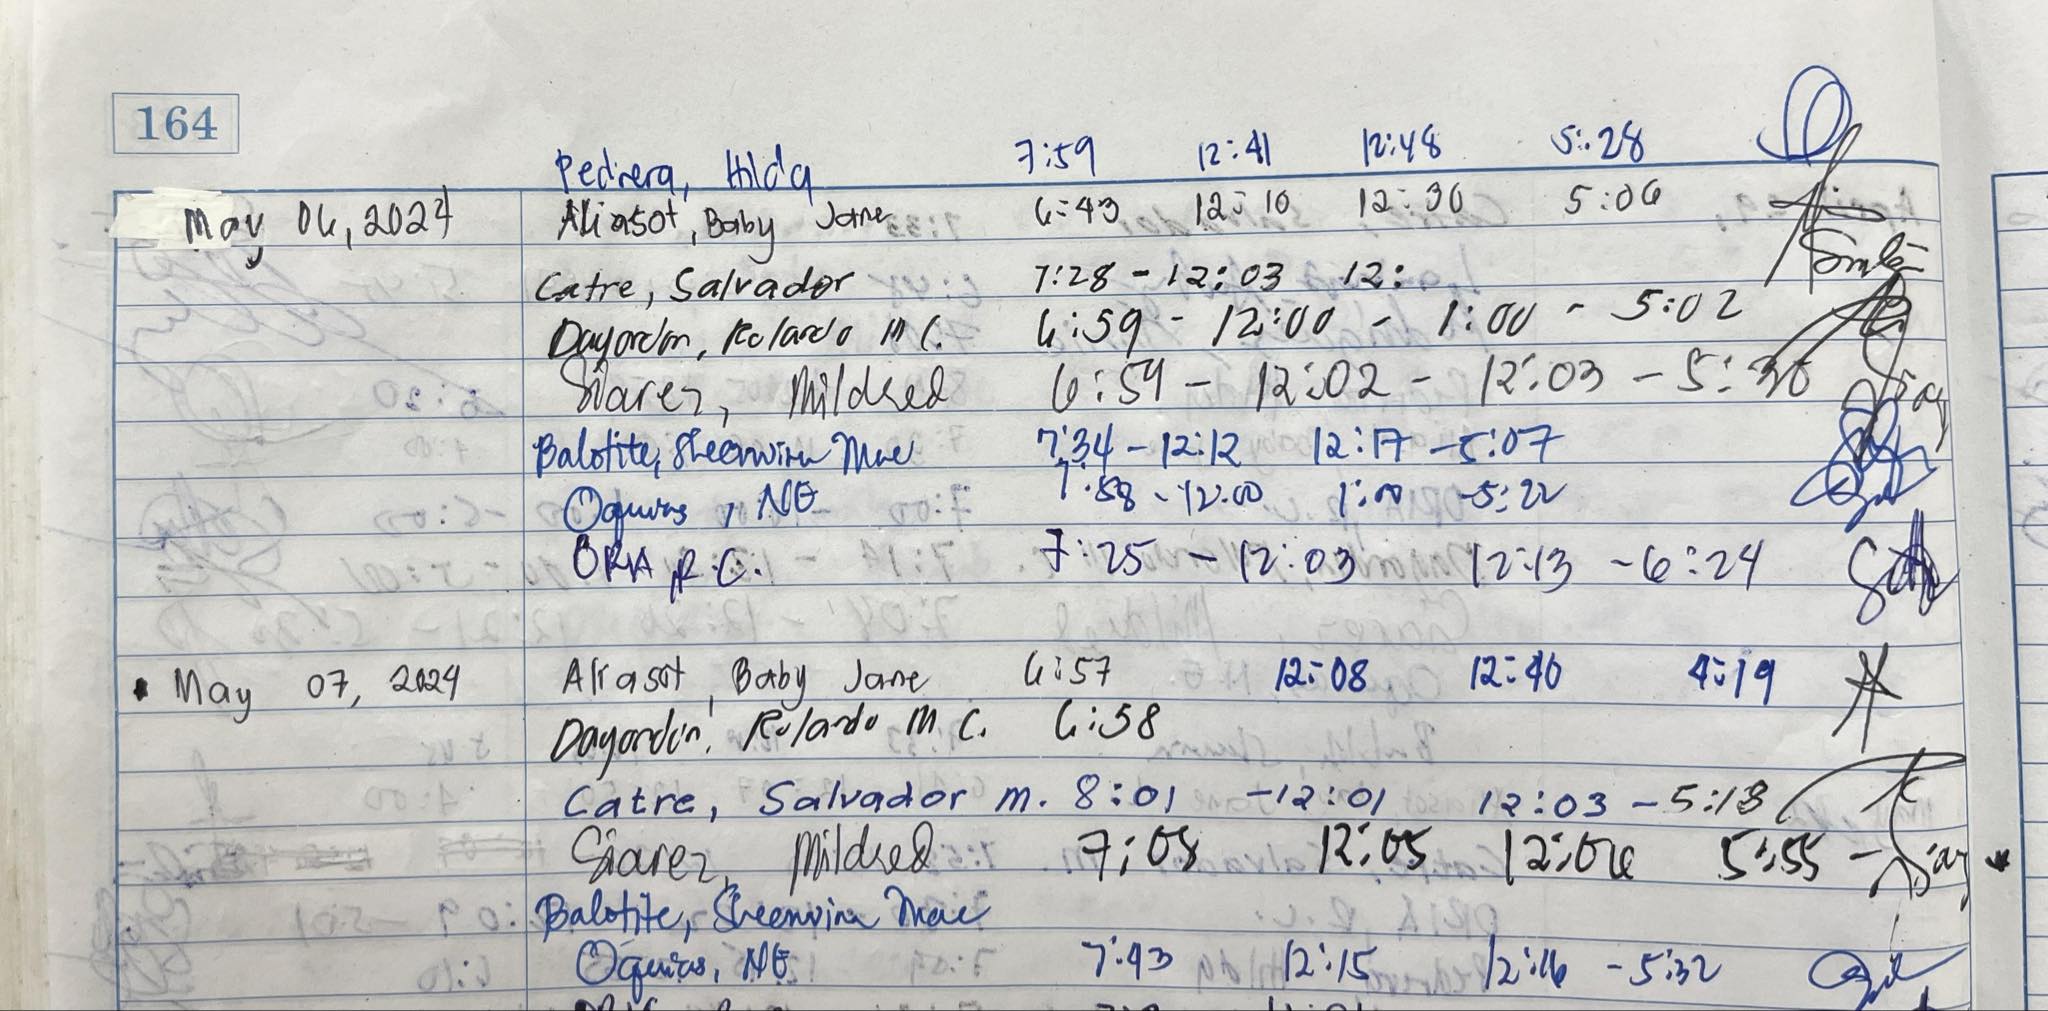 164
Pedrera, Hilda 7:59 12:41 12:48 5:28
May 06, 2024 Aliasot, Baby Jane 6:43 12:10 12:30 5:06
Catre, Salvador 7:28 - 12:03 12:
Dayordon, Rolando M C. 6:59 - 12:00 - 1:00 - 5:02
Siarez, Mildred 6:59 - 12:02 - 12:03 - 5:30
Balotite, Sheenvira Mae 7:34 - 12:12 12:17 - 5:07
Oquias, NE 7:58 - 12:00 1:00 - 5:22
ORIA, R.C. 7:25 - 12:03 12:13 - 6:24
May 07, 2024 Aliasot, Baby Jane 6:57 12:08 12:40 4:19
Dayordon, Rolando M C. 6:58
Catre, Salvador M. 8:01 - 12:01 12:03 - 5:13
Siarez, Mildred 7:05 12:05 12:06 5:55 -
Balotite, Sheenvira Mae
Oquias, NE 7:43 12:15 12:16 - 5:32